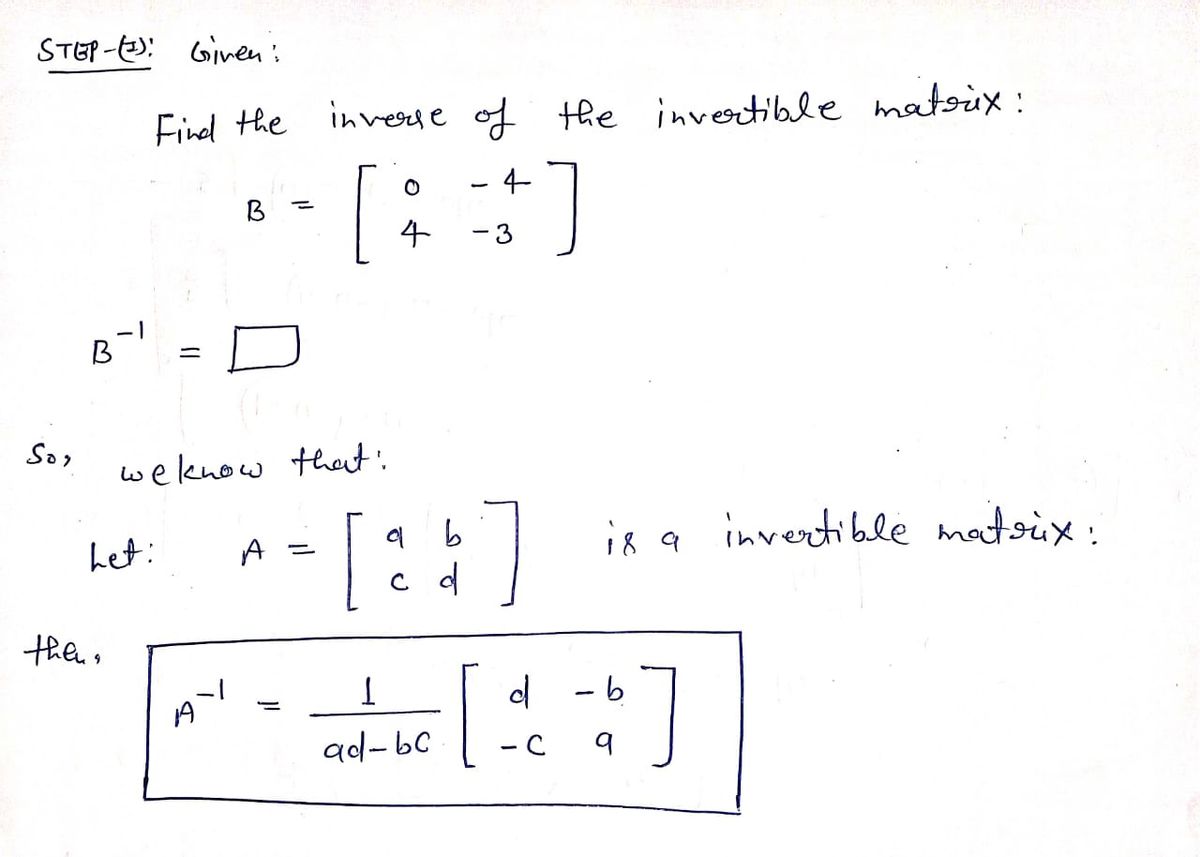 STEP-(I): Given:
Find the inverse of the invertible matrix:
B = [ 0 -4
4 -3 ]
B⁻¹ = □
So, we know that:
Let: A = [ a b
c d ] is a invertible matrix:
then,
A⁻¹ = 1/(ad-bc) [ d -b
-c a ]